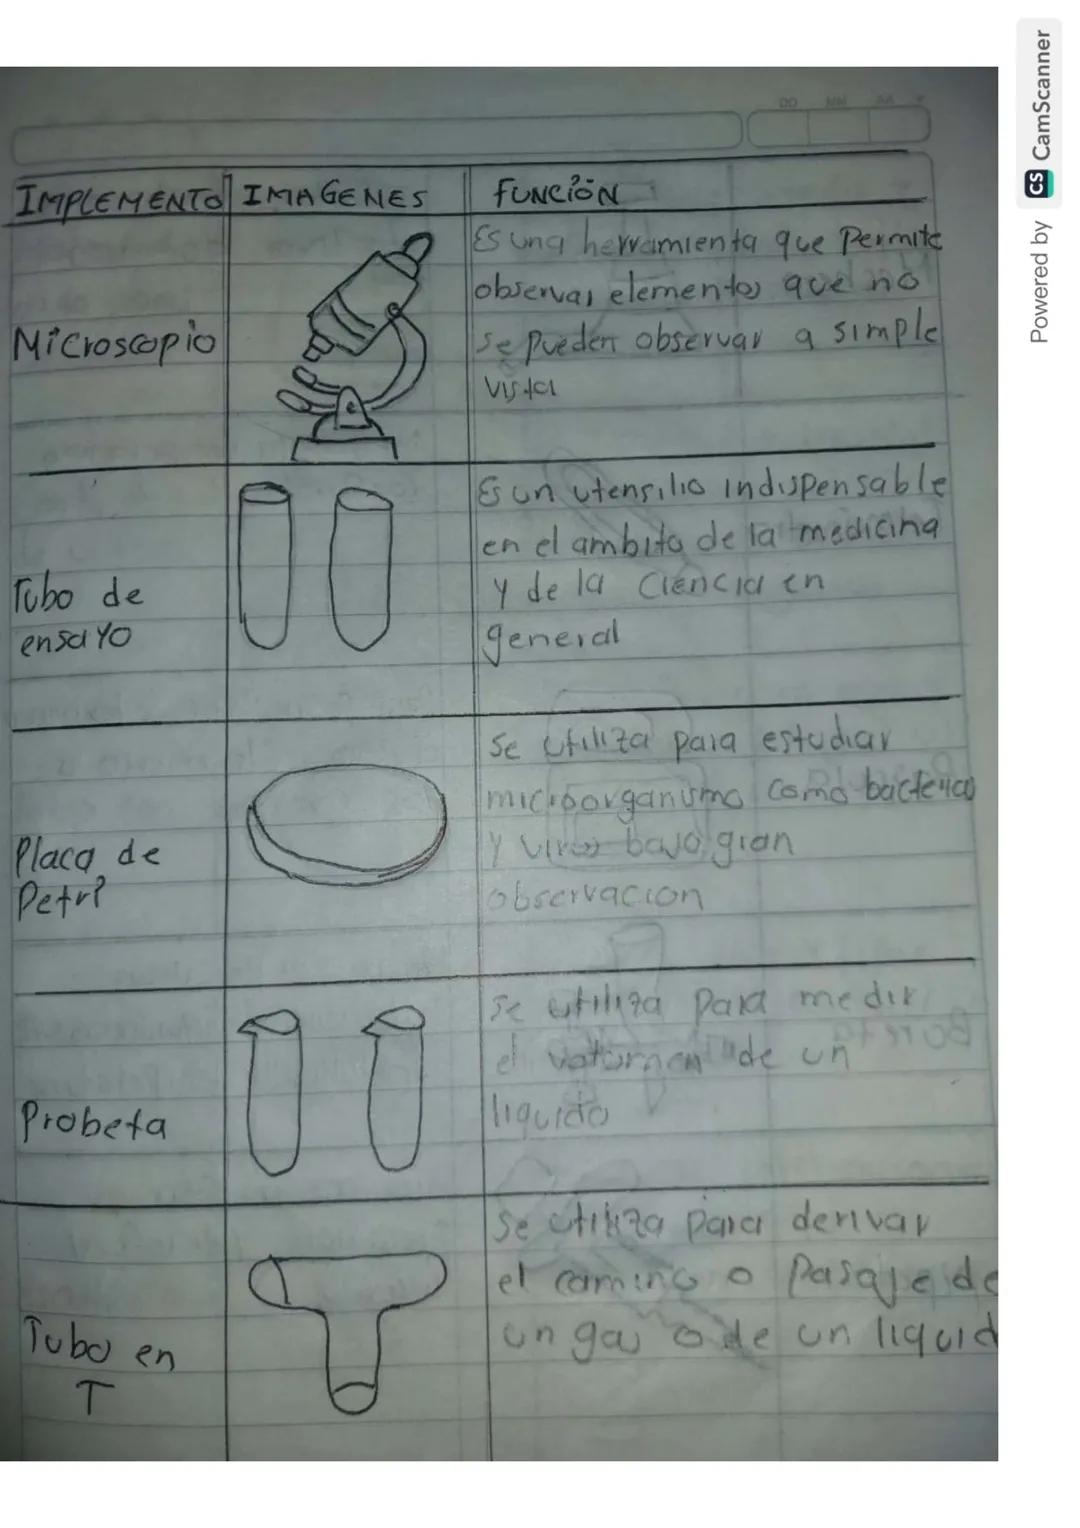 DD MM AA
IMPLEMENTO IMAGENES FUNCIÓN
Microscopio
Es una herramienta que Permite
observar elementos que no
se pueden observar a simple
vista
Tubo de
ensayo
Es un utensilio indispensable
en el ambito de la medicina
y de la Ciencia en
general
Placa de
Petri
Se utiliza para estudiar
microorganismo como bacterias
y virus bajo gran
observacion
Probeta
Se utiliza para medir
el volumen de un
liquido
Tubo en
T
Se utiliza para derivar
el camino o Pasaje de
un gas o de un liquid
Powered by CS CamScanner